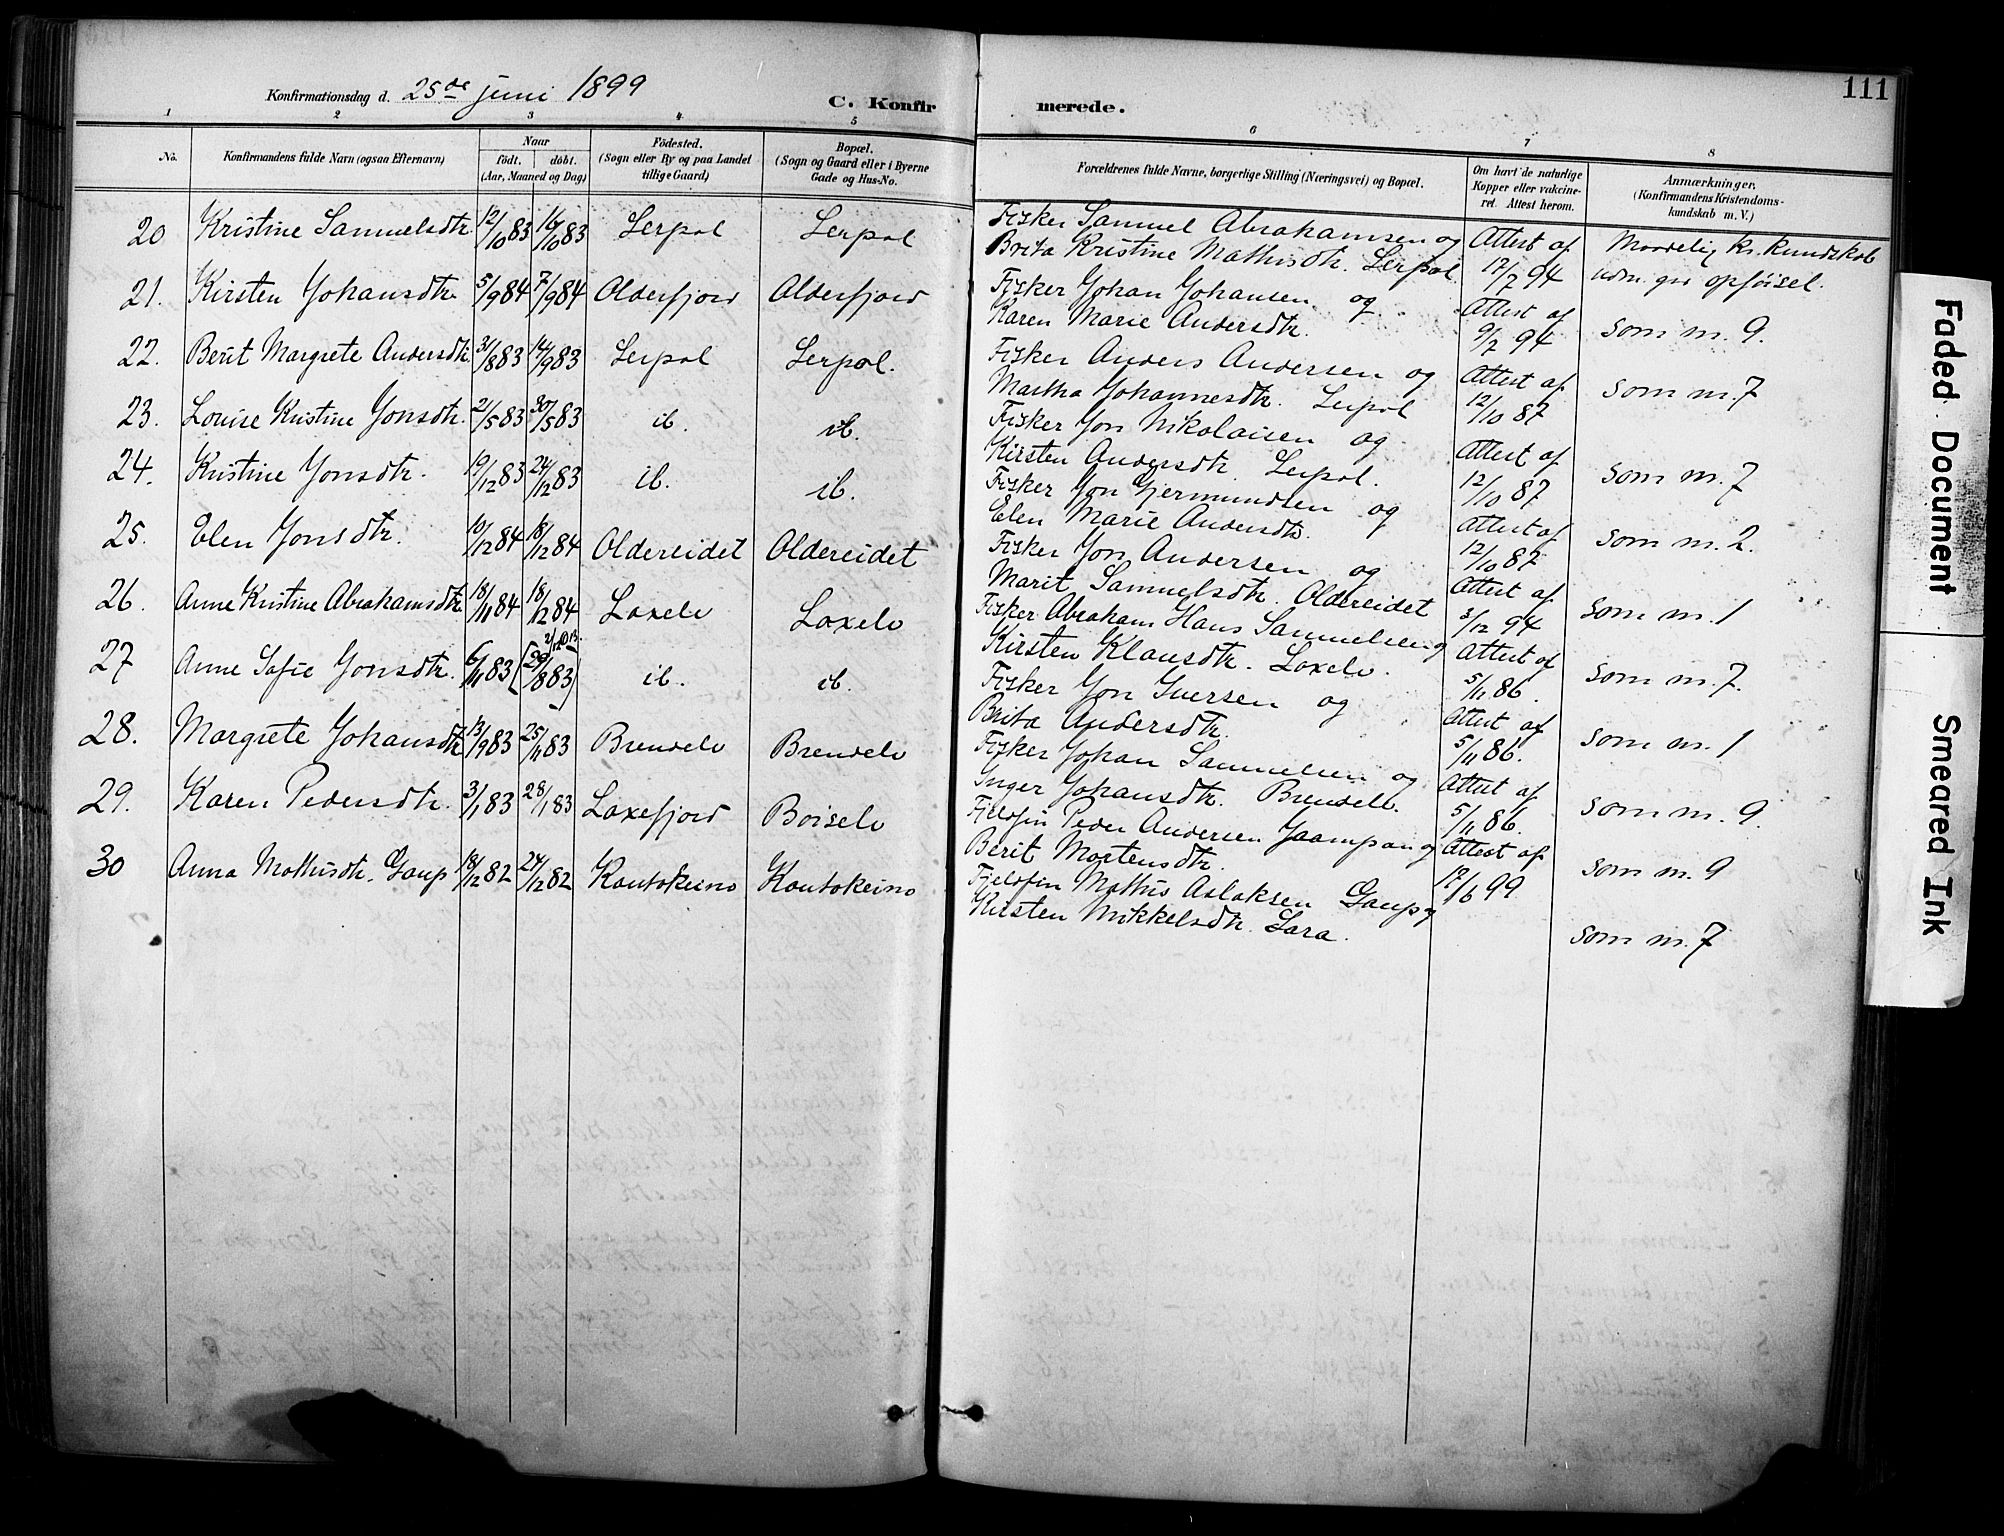 111
Konfirmationsdag d. 25de juni 1899
C. Konfirmerede.
1 2 3 4 5 6 7 8
No. Konfirmandens fulde Navn (ogsaa Efternavn) Naar födt. döbt. (Aar, Maaned og Dag) Födested. (Sogn eller By og paa Landet tillige Gaard) Bopæl. (Sogn og Gaard eller i Byerne Gade og Hus-No. Forældrenes fulde Navne, borgerlige Stilling (Næringsvei) og Bopæl. Om havt de naturlige Kopper eller vakcineret. Attest herom. Anmærkninger. (Konfirmandens Kristendomskundskab m. V.)
20 Kristine Samuelsdtr. 12/10 83 16/10 83 Lerpol Lerpol Fisker Samuel Abrahamsen og Brita Kristine Mathisdtr. Lerpol Attest af 17/7 94 kr. kundskab udm. gor opføisel.
21. Kirsten Johansdtr. 5/9 84 7/9 84 Olderfjord Olderfjord Fisker Johan Johansen og Karen Marie Andersdtr. Attest af 9/2 94 som m. 9.
22. Berit Margrete Andersdtr. 31/8 83 14/9 83 Lerpol Lerpol. Fisker Anders Andersen og Martha Johannesdtr. Lerpol Attest af 12/10 87 som m. 7
23. Louise Kristine Jonsdtr. 21/5 83 30/5 83 ib. ib. Fisker Jon Nikolaisen og Kirsten Andersdtr. Lerpol. Attest af 12/10 87 som m. 7
24. Kristine Jonsdtr. 19/12 83 24/12 83 ib. ib. Fisker Jon Gjermundsen og Elen Marie Andersdtr. Attest af 12/10 87 som m. 2.
25. Elen Jonsdtr. 10/12 84 18/12 84 Oldereidet Oldereidet Fisker Jon Andersen og Marit Samuelsdtr. Oldereidet Attest af 3/12 94 som m. 1
26. Anne Kristine Abrahamsdtr. 18/11 84 18/12 84 Laxelv Laxelv Fisker Abraham Hans Samuelsen og Kirsten Klausdtr. Laxelv. Attest af 5/11 86. som m. 7.
27 Anne Sofie Jonsdtr. 6/11 83 (29/8 83) ib. ib. Fisker Jon Iversen og Brita Andersdtr. Attest af 5/11 86. som m. 1
28. Margrete Johansdtr. 13/9 83 25/11 83 Brenelv Brenelv Fisker Johan Samuelsen og Inger Johansdtr. Brenelv. Attest af 5/11 86. som m. 9.
29. Karen Pedersdtr. 3/1 83 28/1 83 Laxefjord Børselv Fjeldfin Peder Andersen Jaampan og Berit Mortensdtr. Attest af 17/6 99 som m. 9
30 Anna Mathisdtr. Gaup 18/12 82 24/12 82 Koutokeino Koutokeino Fjeldfin Mathis Aslaksen Gaup og Kirsten Mikkelsdtr. Sara. som m. 7
Faded Document
Smeared Ink